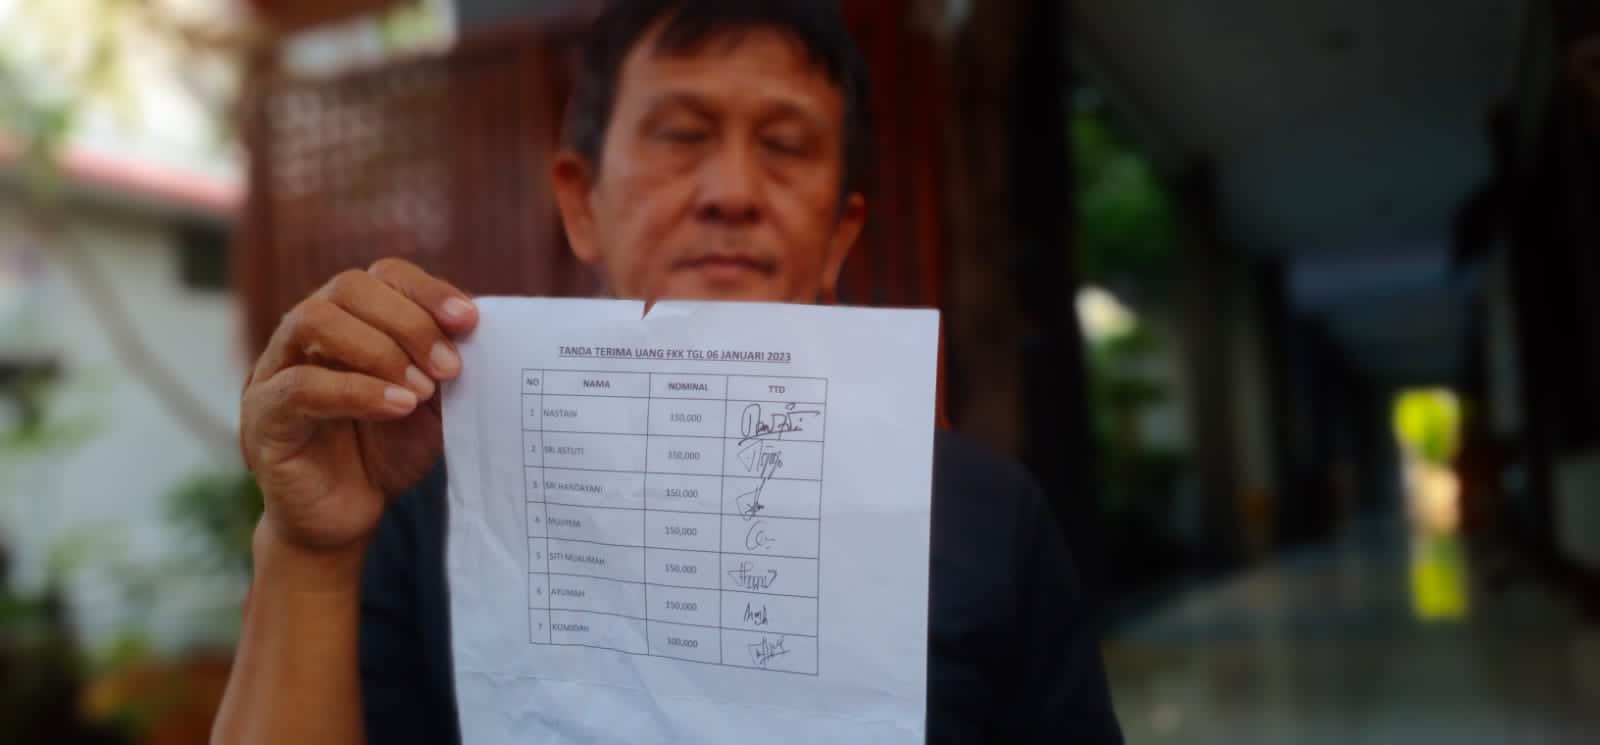 TANDA TERIMA UANG FKK TGL 06 JANUARI 2023
NO NAMA NOMINAL TTD
1 NASTAIN 150,000
2 SRI ASTUTI 150,000
3 SRI HANDAYANI 150,000
4 150,000
5 SITI 150,000
6 AYUMAH 150,000
7 KOMIDAH 100,000